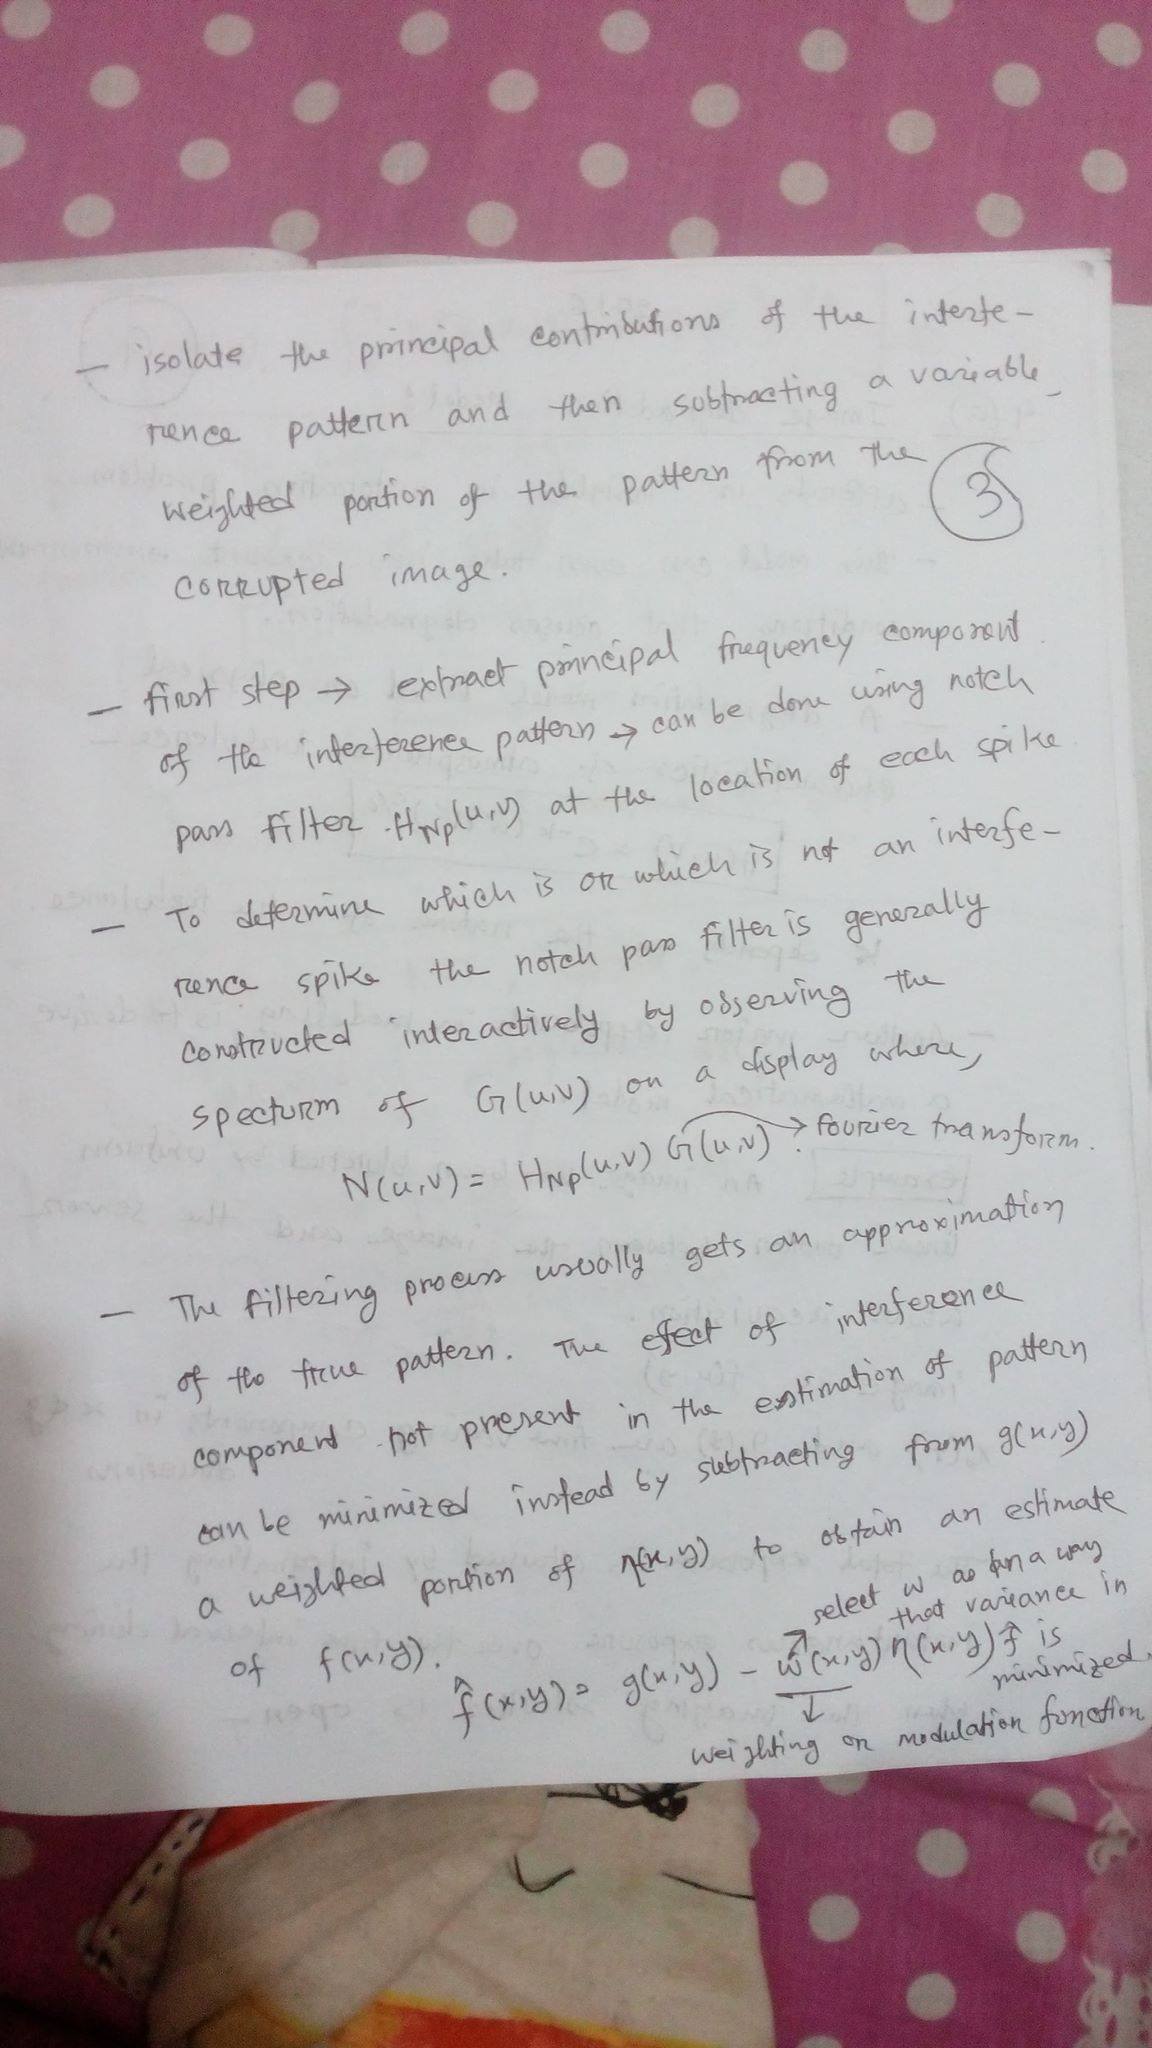 — isolate the principal contributions of the interfe-
rence pattern and then subtracting a variable
weighted portion of the pattern from the
3
corrupted image.
— first step → extract principal frequency component
of the interference pattern → can be done using notch
pass filter H_NP(u,v) at the location of each spike
— To determine which is or which is not an interfe-
rence spike the notch pass filter is generally
constructed interactively by observing the
specturm of G(u,v) on a display where,
N(u,v) = H_NP(u,v) G(u,v) → fourier transform.
— The filtering process usually gets an approximation
of the true pattern. The effect of interference
component not present in the estimation of pattern
can be minimized instead by subtracting from g(x,y)
a weighted portion of η(x,y) to obtain an estimate
of f(x,y).
select w as in a way
that variance in
f̂ is
minimized
f̂(x,y) = g(x,y) - w(x,y) η(x,y)
weighting or modulation function